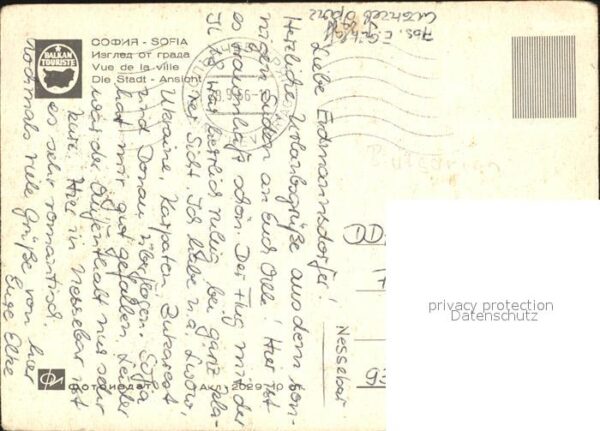 СОФИЯ - SOFIA
Изглед от града
Vue de la ville
Die Stadt - Ansicht
BALKAN
TOURISTE
Abs. E.
Liebe Erdmannsdorfer!
Herzliche Urlaubsgrüße aus dem son-
nigen Süden an Euch Alle! Hier ist
es traumhaft schön. Der Flug mit der
IL 18 war herrlich ruhig bei ganz kla-
rer Sicht. Ich habe u.a. Lwow,
Ukraine, Karpaten, Bukarest
und Donau überflogen. Sofia
hat mir gut gefallen. Leider
war der Aufenthalt nur sehr
kurz. Hier in Nessebar ist
es sehr romantisch.
Nochmals viele Grüße von hier
Eure Elke
Nessebar
DD
privacy protection
Datenschutz
Фотоиздат
Ак. 2029